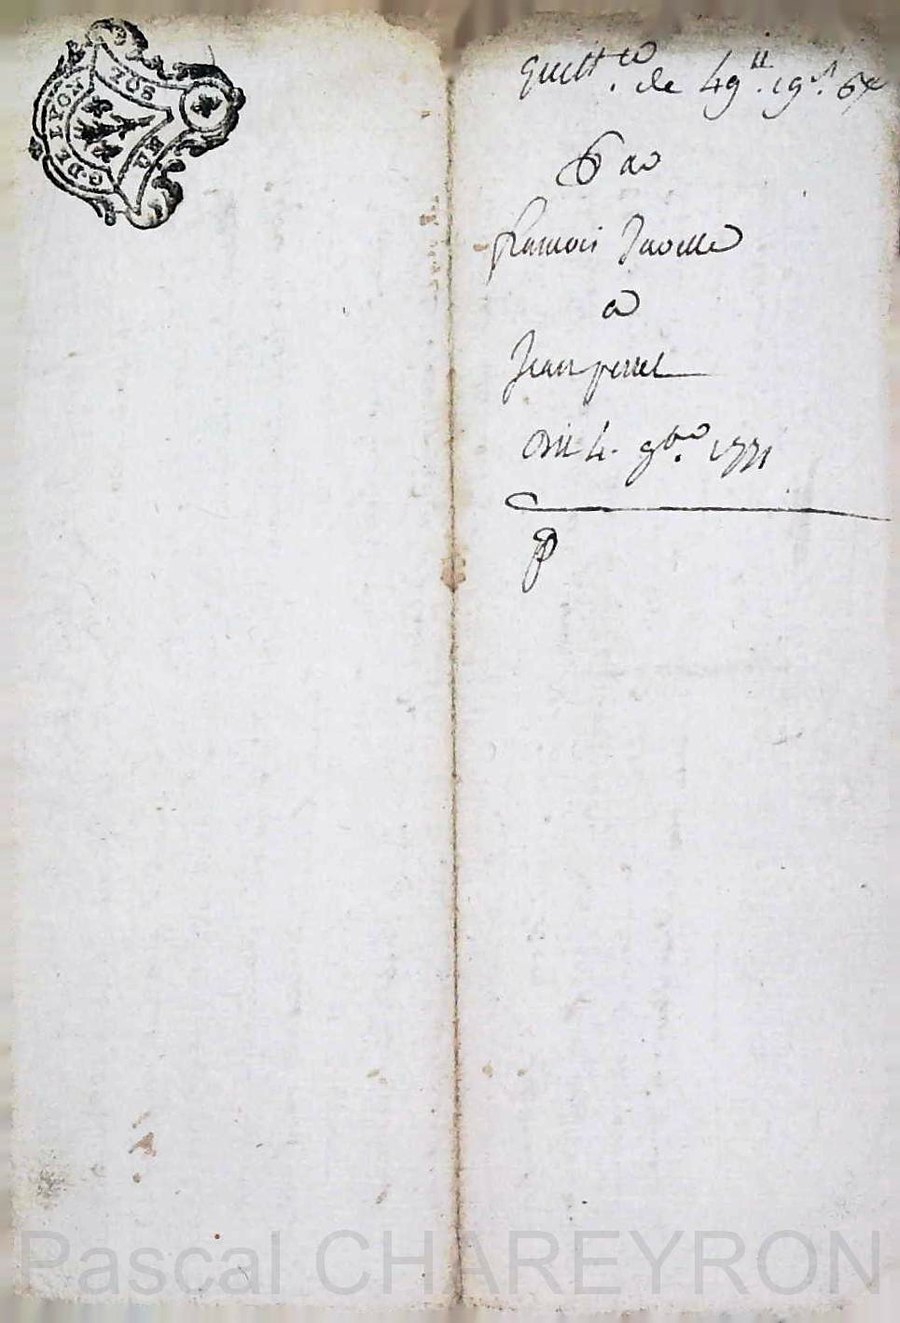 G. DE LYON
SOLS
quitt.ce de 49.ll 19.s 6.d
Par
françois
a
Jean perret
Du 4. 9bre 1771
P
Pascal CHAREYRON